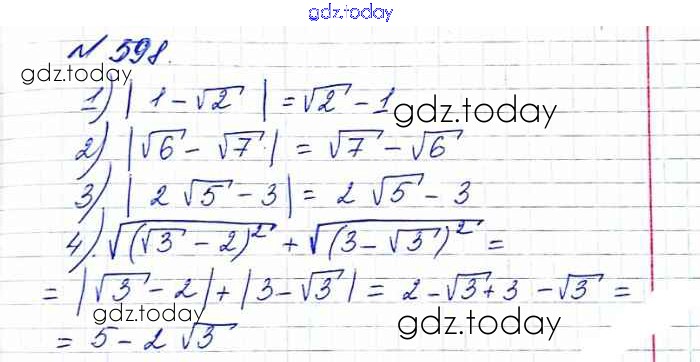 gdz.today
№ 598.
gdz.today
1) | 1 - √2 | = √2 - 1
gdz.today
2) |√6 - √7| = √7 - √6
3) | 2√5 - 3| = 2√5 - 3
4). √(√3 - 2)² + √(3 - √3)² =
= |√3 - 2| + |3 - √3| = 2 - √3 + 3 - √3 =
gdz.today
gdz.today
= 5 - 2√3